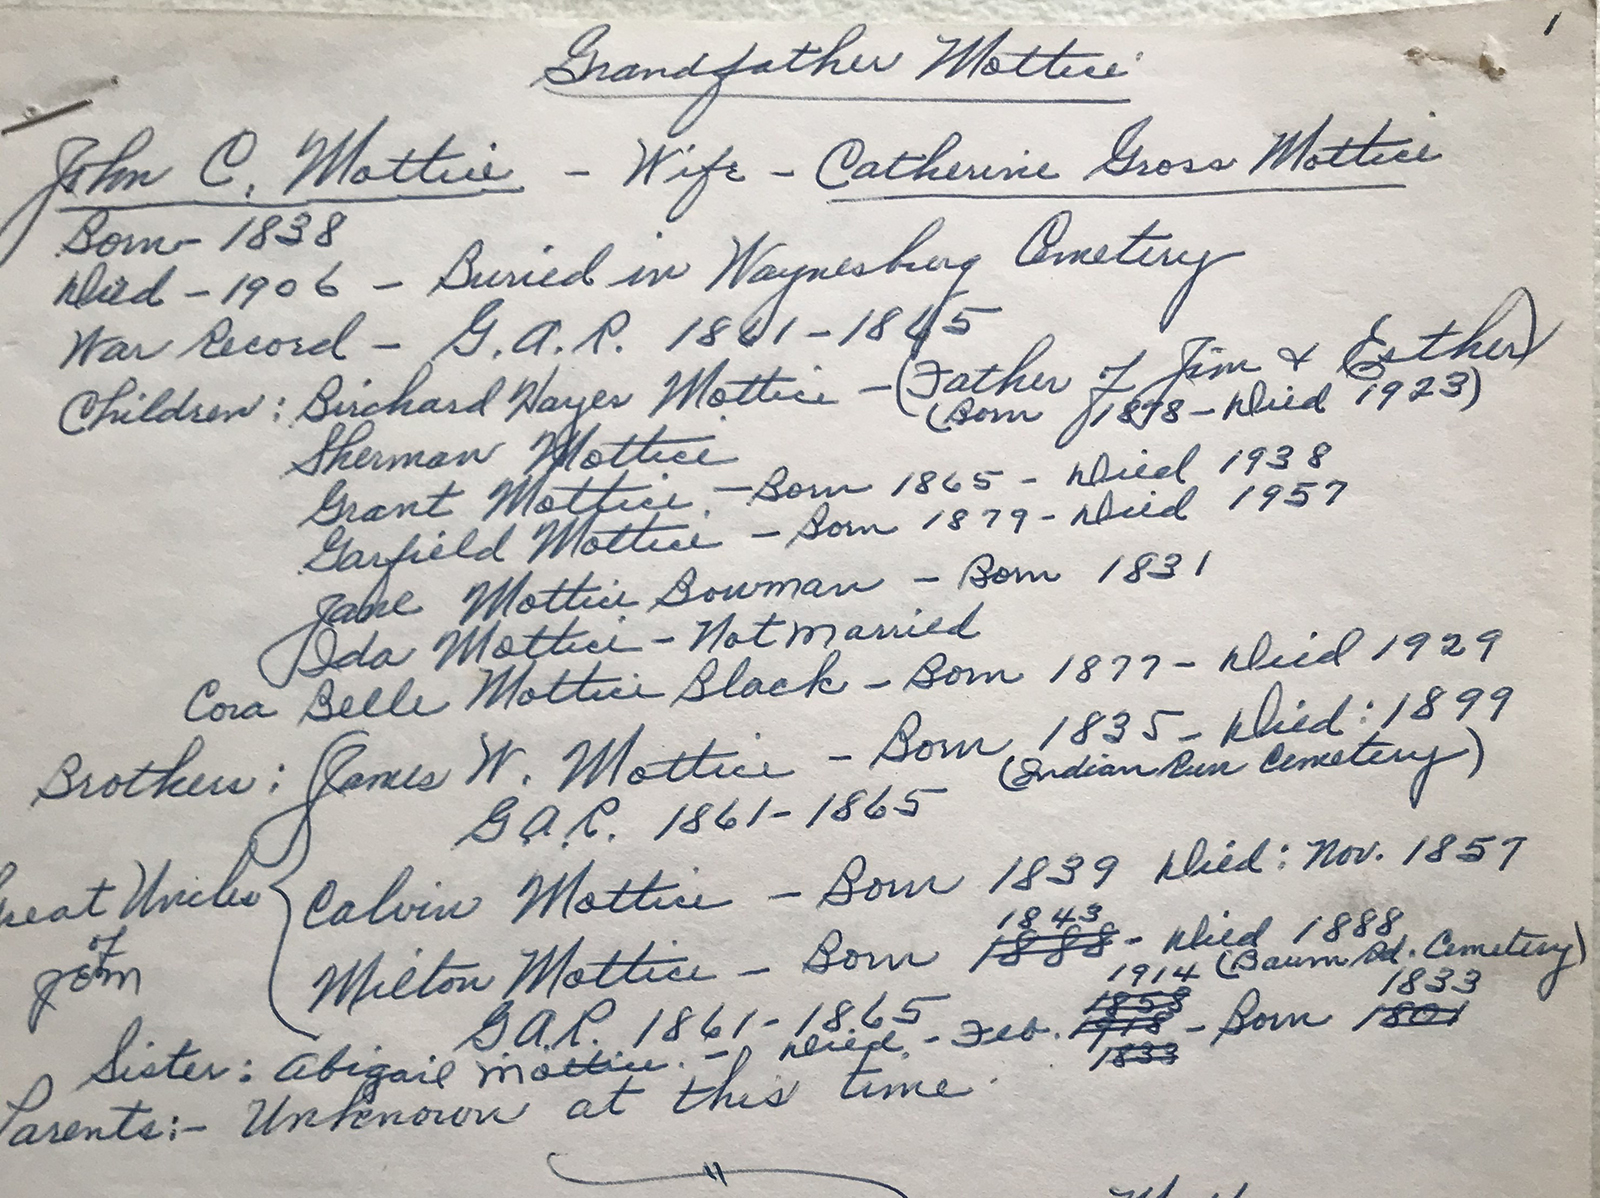 1
Grandfather Mottice
John C. Mottice - Wife - Catherine Gross Mottice
Born - 1838
Died - 1906 - Buried in Waynesburg Cemetery
War Record - G.A.R. 1861-1865
Children: Birchard Hayes Mottice - (Father of Jim & Esther)
(Born 1878 - Died 1923)
Sherman Mottice
Grant Mottice - Born 1865 - Died 1938
Garfield Mottice - Born 1879 - Died 1957
Jane Mottice Bowman - Born 1831
Ida Mottice - Not Married
Cora Belle Mottice Black - Born 1877 - Died 1929
Brothers: James W. Mottice - Born 1835 - Died: 1899
(Indian Run Cemetery)
G.A.R. 1861-1865
Great Uncles of Jim
Calvin Mottice - Born 1839 Died: Nov. 1857
1843
Milton Mottice - Born 1888 - Died 1888
(Baum Rd. Cemetery)
G.A.R. 1861-1865
1914 1833
1853
Sister: Abigail Mottice - Died - Feb. 1918 - Born 1801
1833
Parents:- Unknown at this time.